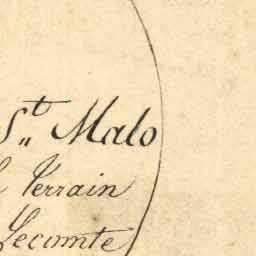 St. Malo
Terrain
Lecomte